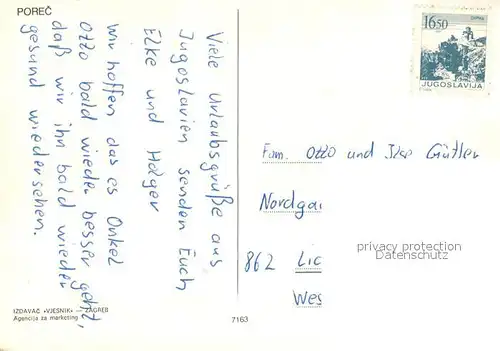 POREČ
Viele Urlaubsgrüße aus
Jugoslavien senden Euch
Elke und Holger
Wir hoffen das es Onkel
Otto bald wieder besser geht,
daß wir ihn bald wieder
gesund wiedersehen.
IZDAVAČ »VJESNIK« — ZAGREB
Agencija za marketing
7163
16.50
JUGOSLAVIJA
Fam. Otto und Ilse Güller
Nordgai
862 Lic
Wes
privacy protection
Datenschutz